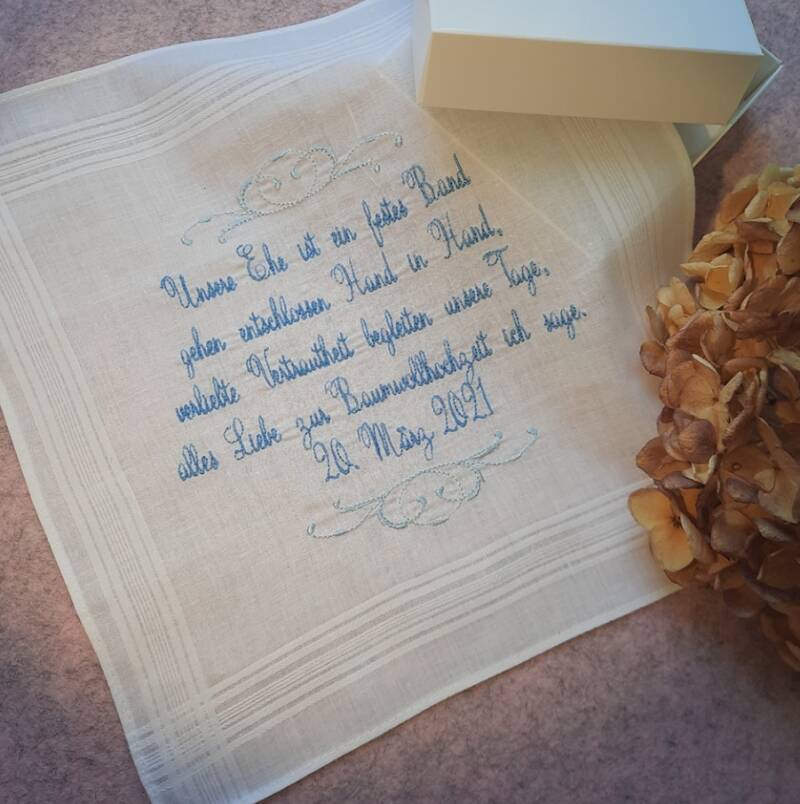 Unsere Ehe ist ein festes Band
gehen entschlossen Hand in Hand,
verliebte Vertrautheit begleiten unsere Tage,
alles Liebe zur Baumwollhochzeit ich sage.
20. März 2021